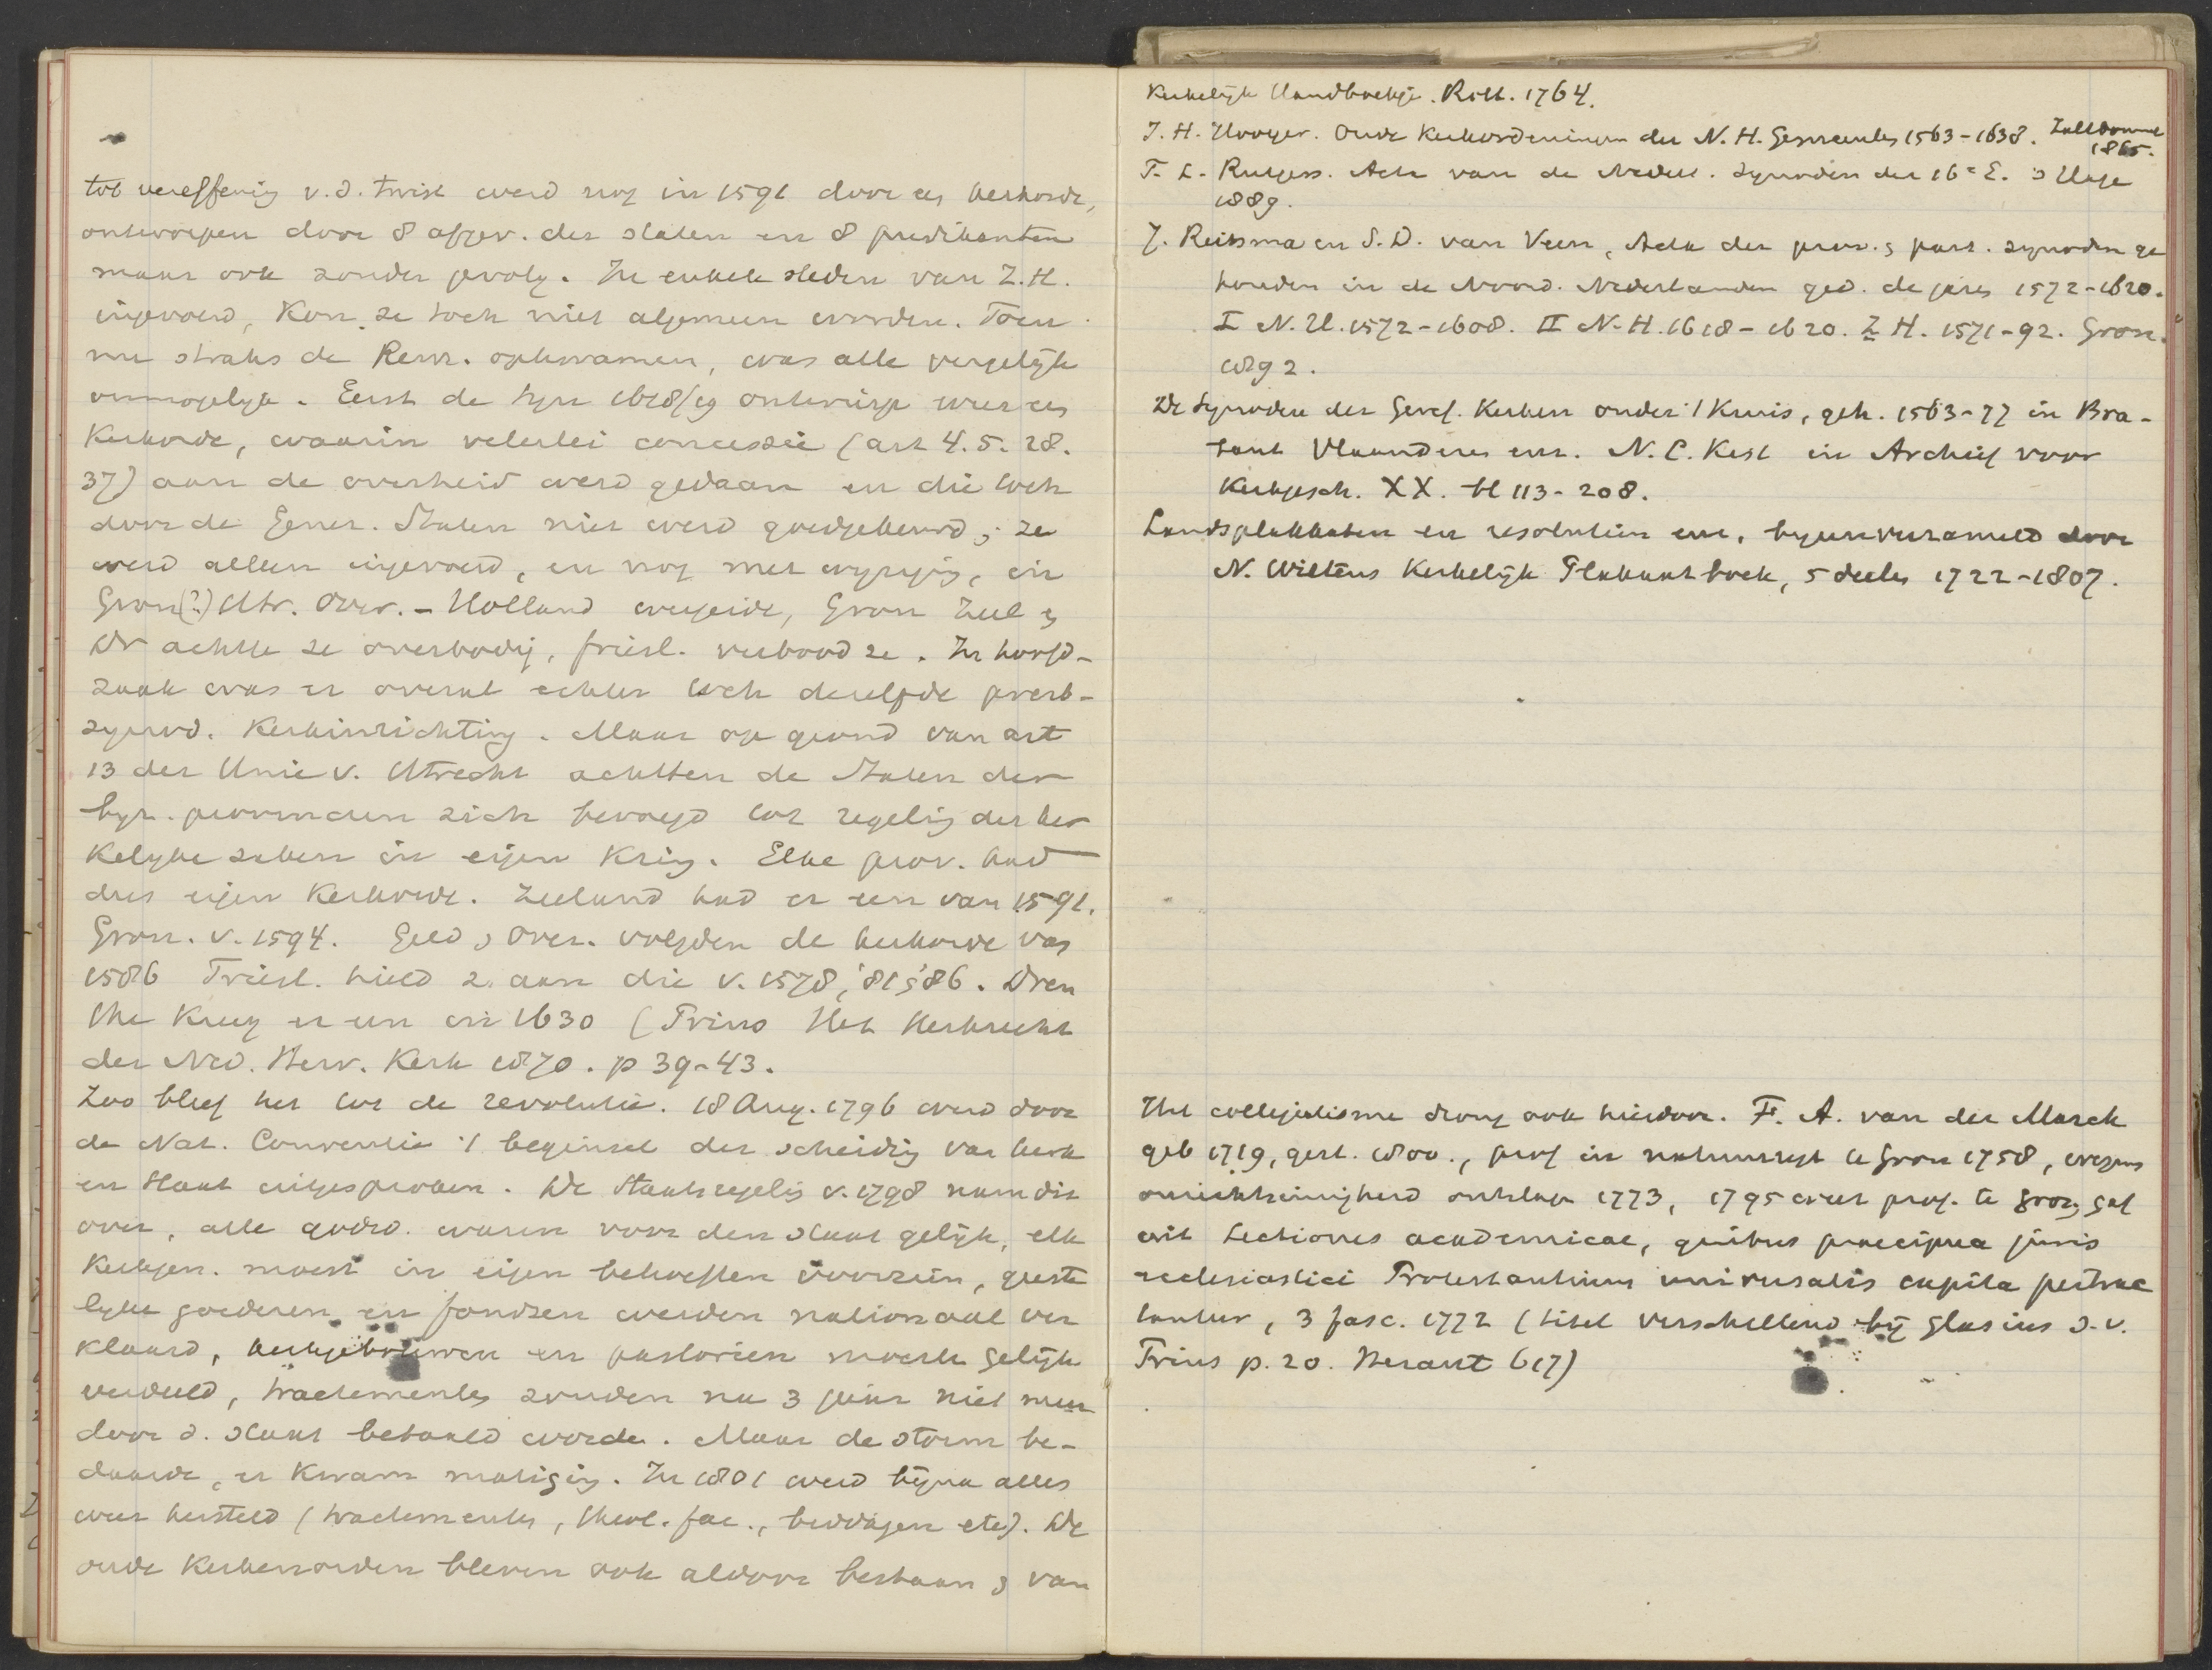 tot vereffenig v.d. twist werd nog in 1591 door een kerkorde,
ontworpen door 8 afgev. der staten en 8 predikanten
maar ook zonder gevolg. In enkele steden van Z.H.
ingevoerd, kon ze toch niet algemeen worden. Toen
nu straks de Rem. opkwamen, was alle vergelijk
onmogelijk. Eerst de Syn 1618/19 ontwierp weer een
Kerkorde, waarin velerlei concessie (art 4. 5. 28.
37) aan de overheid werd gedaan en die toch
door de Gener. Staten niet werd goedgekeurd; ze
werd alleen ingevoerd, en nog met wijzigig, in
Gron(?) Utr. Over. - Holland weigerde, Gron Zeel &
Dr achtte ze overbodig, friesl. verbood ze. In hoofd-
zaak was er overal echter toch dezelfde presb-
synod. Kerkinrichting. Maar op grond van art
13 der Unie v. Utrecht achtten de Staten der
byz. provinciën zich bevoegd tot regelig der ker
kelyke zaken in eigen kring. Elke prov. had
dus eigen Kerkorde. Zeeland had er een van 1591.
Gron. v. 1594. Geld & Over. volgden de kerkorde van
1586 Friesl. hield z. aan die v. 1578, '81 & '86. Dren
the kreeg er een in 1630 (Prins Het Kerkrecht
der Ned. Herv. Kerk 1870. p 39-43.
Zoo bleef het tot de revolutie. 18 Aug. 1796 werd door
de Nat. Conventie 't beginsel der scheidig van kerk
en Staat uitgesproken. De Staatsregelig v. 1798 nam dit
over, alle godsd. waren voor den staat gelijk, elk
Kerkgen. moest in eigen behoeften voorzien, geeste
lyke goederen en fondsen werden nationaal ver
klaard, kerkgebouwen en pastorien moesten gelijk
verdeeld, tractementen zouden na 3 jaar niet meer
door d. staat betaald worden. Maar de storm be-
daarde, er kwam matigig. In 1801 werd bijna alles
weer hersteld (tractementen, theol. fac., beurzen etc). De
oude Kerkenorden bleven ook aldoor bestaan & van
Kerkelijk Handboekje. Rott. 1764.
J. H. Hooyer. Oude Kerkordeningen der N. H. Gemeenten 1563-1638. Zaltbommel
1865.
F. L. Rutgers. Acta van de Nederl. Synoden der 16e E. 's Hage
1889.
J. Reitsma en S. D. van Veen, Acta der prov. & part. synoden ge
houden in de Noord. Nederlanden ged. de jaren 1572-1620.
I N. H. 1572-1608. II N. H. 1618-1620. Z H. 1571-92. Gron.
1892.
De Synoden der Geref. Kerken onder 't Kruis, geh. 1563-77 in Bra-
bant Vlaanderen enz. N. C. Kist in Archief voor
Kerkgesch. XX. bl 113-208.
Landsplakkaten en resolutiën enz, byeenverzameld door
N. Wiltens Kerkelijk Plakaatboek, 5 deelen 1722-1807.
Het collegialisme drong ook hierdoor. F. A. van der Marck
geb 1719, gest. 1800., prof in natuurregt te Gron 1758, wegens
onrechtzinnigheid ontslagen 1773, 1795 weer prof. te Gron, gaf
uit Lectiones academicae, quibus praecipua juris
ecclesiastici Protestantium universalis capita pertrac
tantur, 3 fasc. 1772 (titel verschillend bij Glasius s.v.
Prins p. 20. Heraut 617)